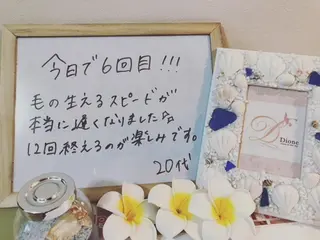 今日で6回目!!!
毛の生えるスピードが
本当に遅くなりました☆
12回終えるのが楽しみです。
20代
Dione